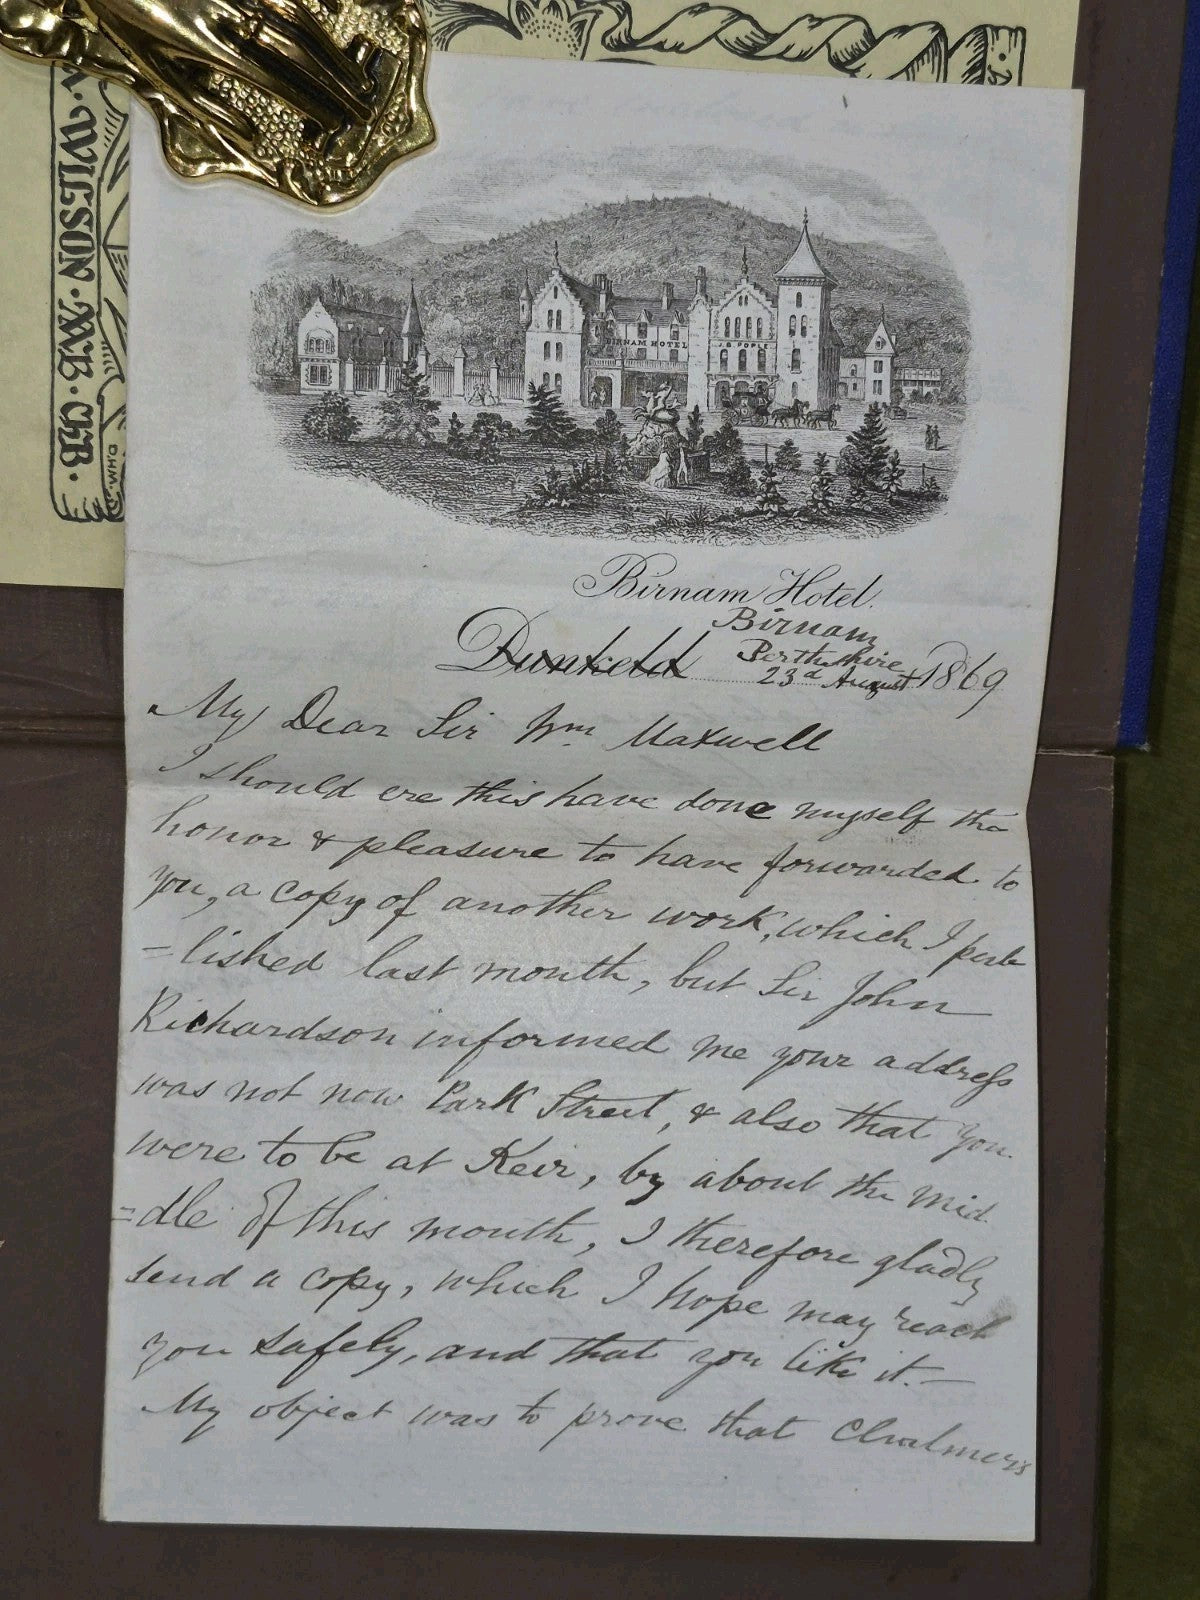 V. WILSON. MB. CH.B.
D.H.M.
BIRNAM HOTEL
J.S POPLE
Birnam Hotel.
Birnam
Dunkeld Perthshire
23d August 1869
My Dear Sir Wm Maxwell
I should ere this have done myself the
honor & pleasure to have forwarded to
you, a copy of another work, which I pub
=lished last month, but Sir John
Richardson informed me your address
was not now Park Street, & also that you
were to be at Keir, by about the mid
=dle of this month, I therefore gladly
send a copy, which I hope may reach
you safely, and that you like it.—
My object was to prove that Chalmers's